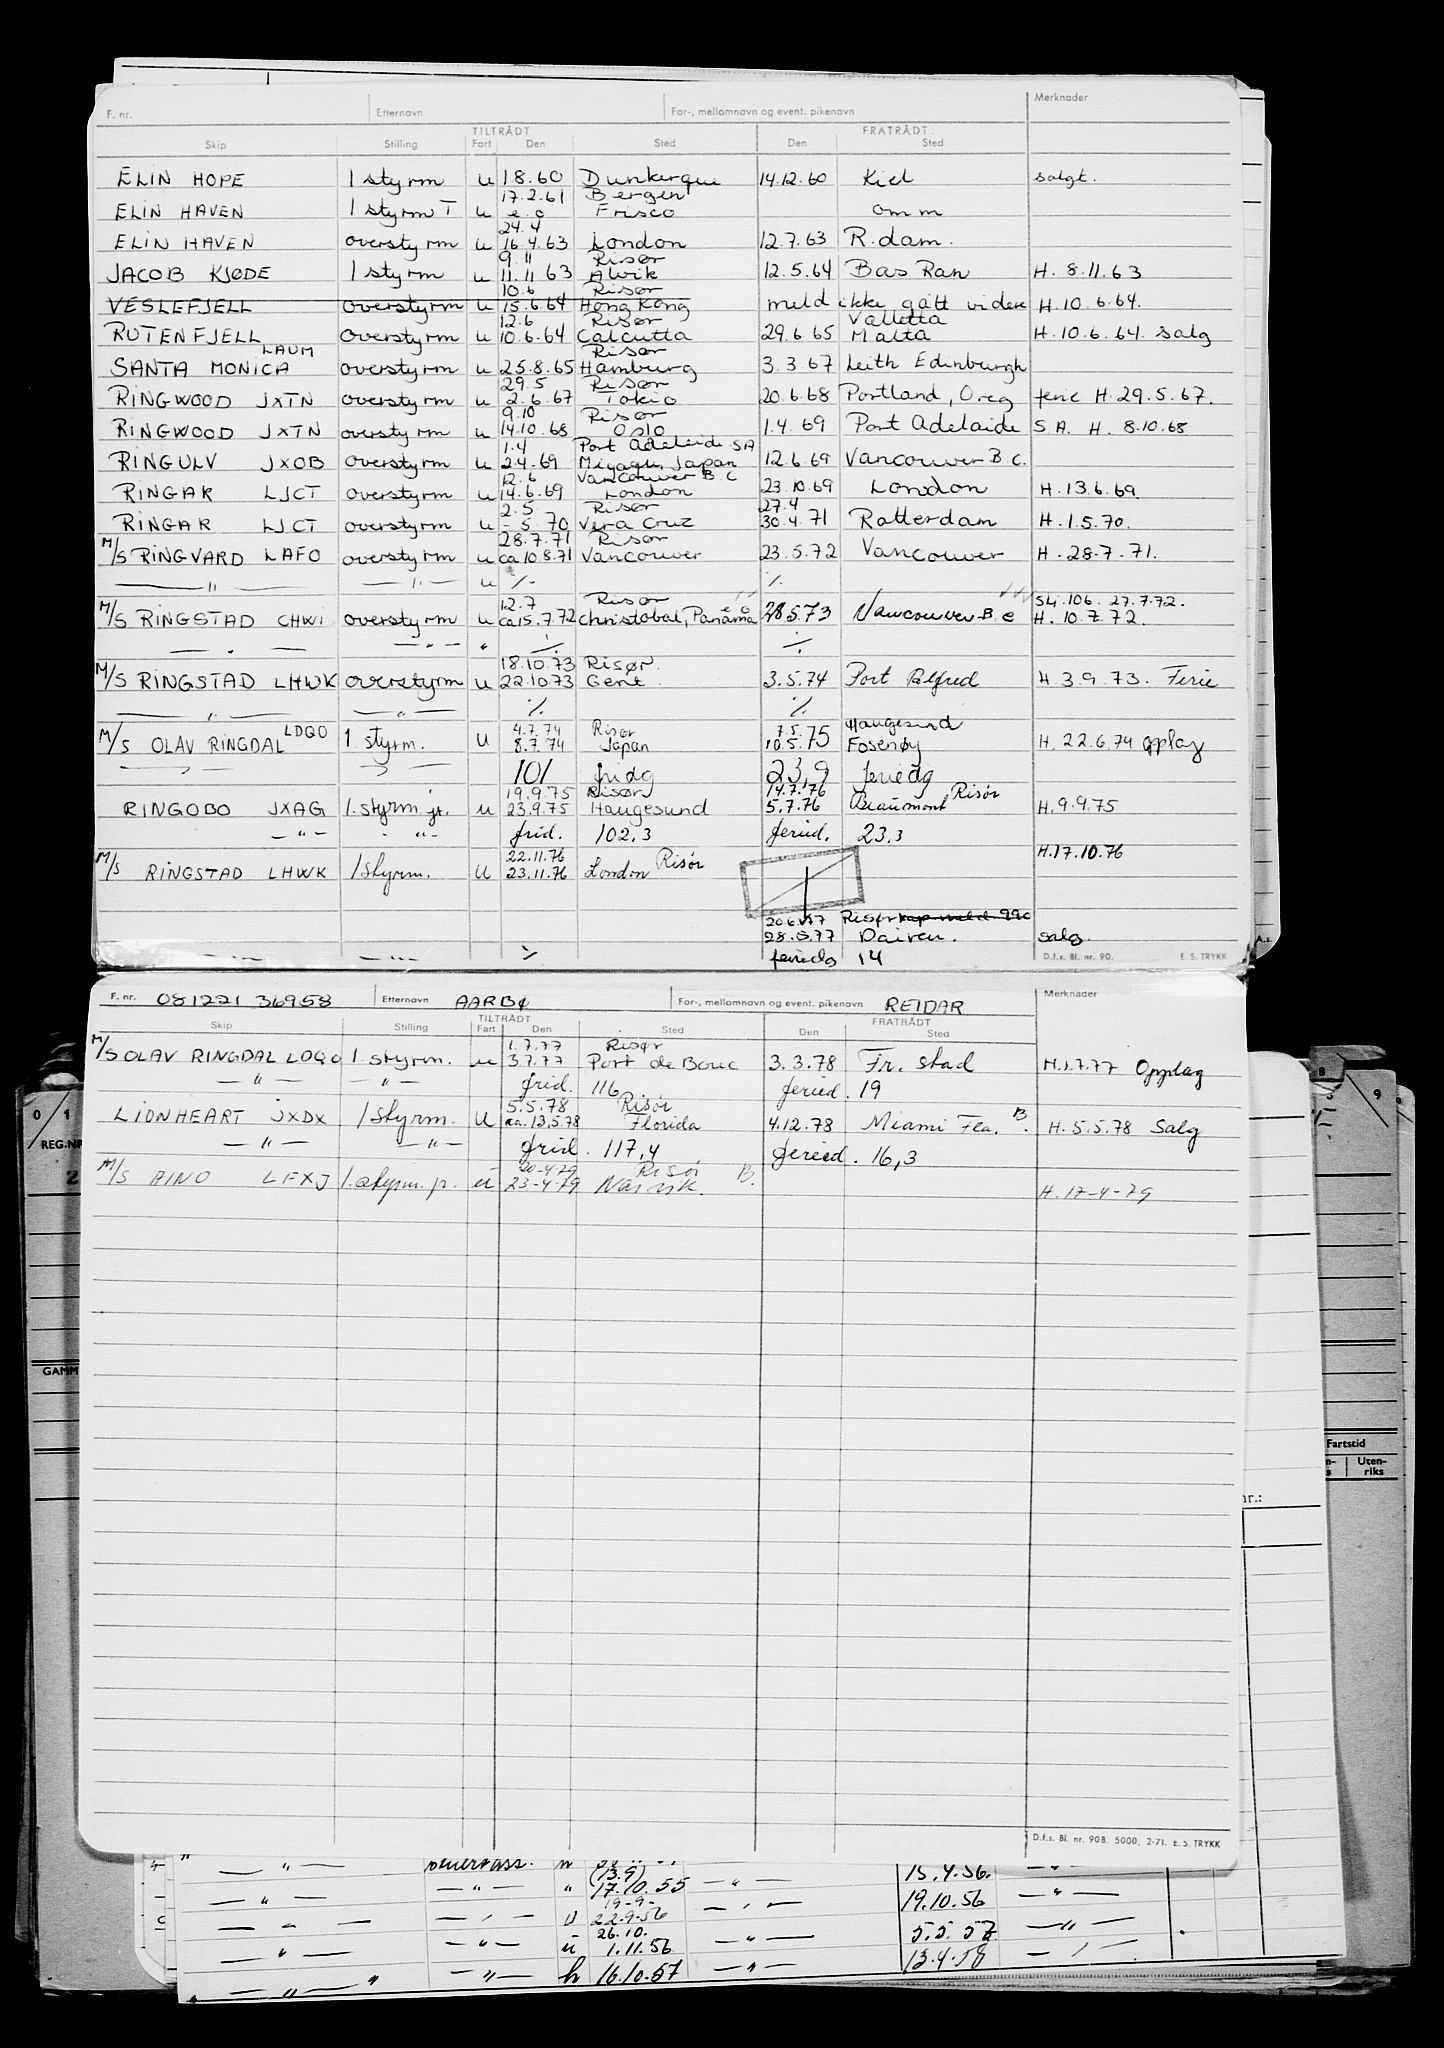 F. nr. Etternavn For-, mellomnavn og event. pikenavn Merknader
TILTRÅDT FRATRÅDT
Skip Stilling Fart Den Sted Den Sted
ELIN HOPE 1 styrm u 1 8.60 Dunkerque 14.12.60 Kiel salgt.
17.2.61 Bergen
ELIN HAVEN 1 styrm T u e.o Frisco omm
24.4
ELIN HAVEN overstyrm u 16.4.63 London 12.7.63 R.dam.
9.11 Risør
JACOB KJØDE 1 styrm u 11.11.63 Alvik 12.5.64 Bas Ran H. 8.11.63
10.6 Risør
VESLEFJELL overstyrm u 15.6.64 Hong Kong meld ikke gått videre H.10.6.64.
12.6 Risør Valletta
RUTENFJELL overstyrm u 10.6.64 Calcutta 29.6.65 Malta H.10.6.64. salg
LAUM Risør
SANTA MONICA overstyrm u 25.8.65 Hamburg 3.3.67 Leith Edinburgh
29.5 Risør
RINGWOOD JXTN overstyrm u 2.6.67 Tokio 20.6.68 Portland, Oreg ferie H.29.5.67.
9.10 Risør
RINGWOOD JXTN overstyrm u 14.10.68 Oslo 1.4.69 Port Adelaide S A. H. 8.10.68
1.4 Port Adelaide SA
RINGULV JXOB overstyrm u 2.4.69 Miyagh, Japan 12.6.69 Vancouver B C.
12.6 Vancouver B C
RINGAR LJCT overstyrm u 14.6.69 London 23.10.69 London H.13.6.69.
2.5 Risør 27.4
RINGAR LJCT overstyrm u - 5.70 Vera Cruz 30.4.71 Rotterdam H.1.5.70.
28.7.71 Risør
M/S RINGVARD LAFO overstyrm u ca 10 8.71 Vancouver 23.5.72 Vancouver H. 28.7.71.
— " — — " — u ٪ ٪
12.7 Risør Sk. 106. 27.7.72.
M/S RINGSTAD CHWI overstyrm u ca 15.7.72 Christobal, Panama 28.5.73 Vancouver B.C H. 10.7.72.
— " — — " — " ٪ ٪
18.10.73 Risør.
M/S RINGSTAD LHWK overstyrm u 22.10.73 Gent. 3.5.74 Port Alfred H 3.9.73. Ferie
— " — — " — ٪ ٪
LDQO 4.7.74 Risør 7.5. Haugesund
M/S OLAV RINGDAL 1. styrm. u 8.7.74 Japan 10.5.75 Fosenøy H. 22.6.74 opplag
— " — — " — 101 fridg 23,9 feriedg
19.9.75 Risør 14.7.76 Risør
RINGOBO JXAG 1. styrm. jr. u 23.9.75 Haugesund 5.7.76 Beaumont H.9.9.75
— " — — " — frid. 102,3 feried. 23,3
22.11.76 Risør H.17.10.76
M/S RINGSTAD LHWK 1 styrm. u 23.11.76 London
20.6.77 Risør
28.5.77 Dairen. salg.
— " — — " — ٪ feriedg 14 D.f.s. Bl. nr. 90. E. S. TRYKK
F. nr. 081221 36958 Etternavn AARBØ For-, mellomnavn og event. pikenavn REIDAR Merknader
TILTRÅDT FRATRÅDT
Skip Stilling Fart Den Sted Den Sted
1.7.77 Risør
M/S OLAV RINGDAL LDQO 1. styrm. u 3.7.77 Port de Bouc 3.3.78 Fr. stad H.1.7.77 Opplag
— " — — " — frid. 116 feried. 19
5.5.78 Risør
LIONHEART JXDX 1 styrm. u ca. 13.5.78 Florida 4.12.78 Miami Fla. B. H. 5.5.78 Salg
— " — — " — frid. 117,4 feried. 16,3
20-4-79 Risør B.
M/S AINO LFXJ 1. styrm. jr. u 23-4-79 Narvik. H. 17-4-79
D.f.s. Bl. nr. 90B. 5000. 2-71. E. S. TRYKK
0 1
REG.NR
2
GAMM
8 9
Fartstid
Uten-
riks
nr.:
— " — n 15.4.56. — " —
(13.9)
— " — — " — " 17.10.55 — " — 19.10.56 — " —
19-9-
— " — — " — u 22.9-56 — " — 5.5.57 — " —
26.10.
— " — — " — u 1.11.56 — " — 13.4.58 — " —
— " — — " — h 16.10.57 — " —